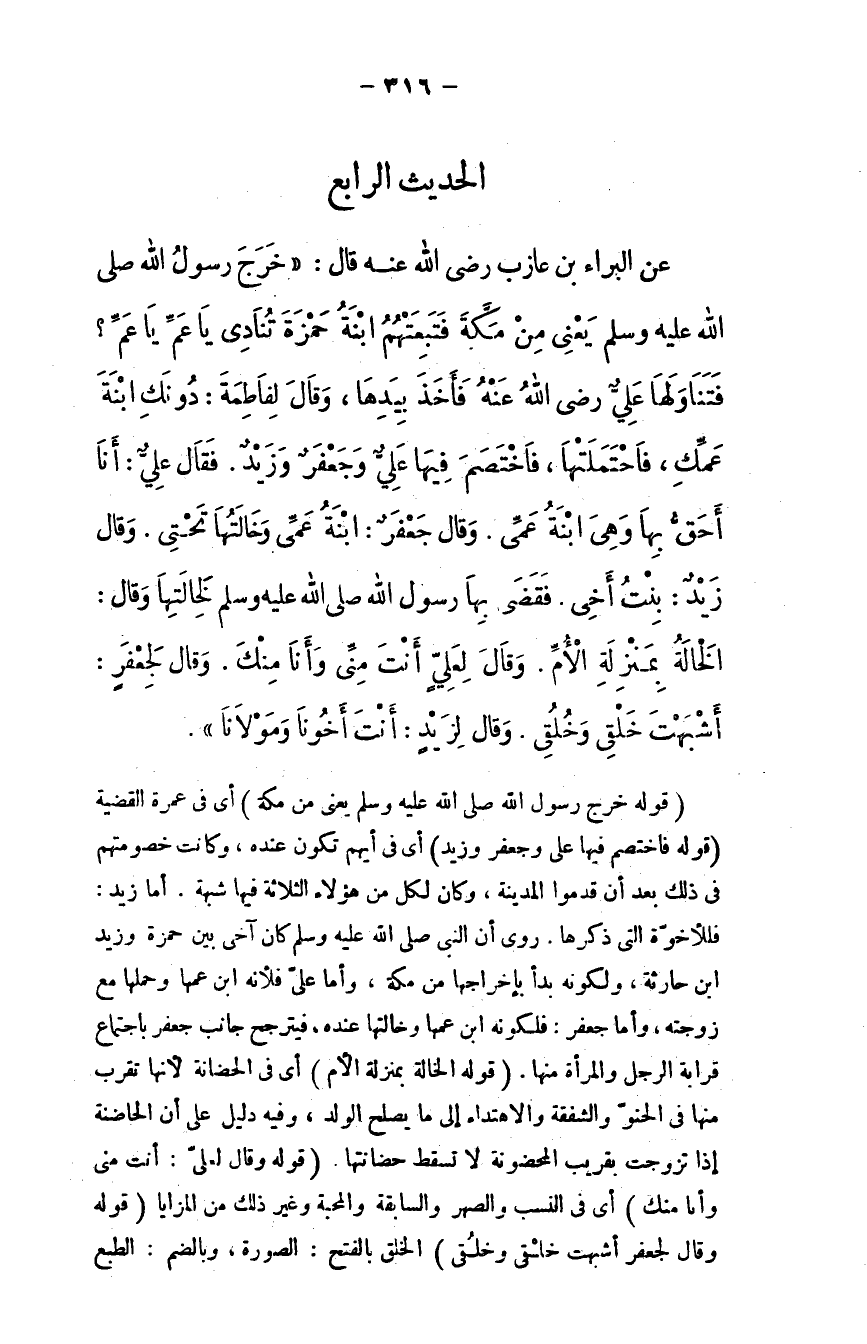 - ٣١٦ -
الحديث الرابع
عن البراء بن عازب رضى الله عنه قال : « خَرَجَ رسولُ الله صلى
الله عليه وسلم يَعْنِى مِنْ مَكَّةَ فَتَبِعَتْهُمُ ابْنَةُ حَمْزَةَ تُنَادِى يَا عَمِّ يَا عَمِّ ؟
فَتَنَاوَلَهَا عَلِيٌّ رضى اللهُ عَنْهُ فَأَخَذَ بِيَدِهَا ، وَقَالَ لِفَاطِمَةَ : دُونَكِ ابْنَةَ
عَمِّكِ ، فَاحْتَمَلَتْهَا ، فَاخْتَصَمَ فِيهَا عَلِيٌّ وَجَعْفَرٌ وَزَيْدٌ . فَقَال عَلِيٌّ : أَنَا
أَحَقُّ بِهَا وَهِىَ ابْنَةُ عَمِّى . وَقال جَعْفَرٌ : ابْنَةُ عَمِّى وَخَالَتُهَا تَحْتِى . وَقال
زَيْدٌ : بِنْتُ أَخِى . فَقَضَى بِهَا رسول الله صلى الله عليه وسلم لِخَالَتِهَا وَقال :
الْخَالَةُ بِمَنْزِلَةِ الْأُمِّ . وَقَالَ لِعَلِيٍّ أَنْتَ مِنِّى وَأَنَا مِنْكَ . وَقال لِجَعْفَرٍ :
أَشْبَهْتَ خَلْقِى وَخُلُقِى . وَقال لِزَيْدٍ : أَنْتَ أَخُونَا وَمَوْلَانَا » .
( قوله خرج رسول الله صلى الله عليه وسلم يعنى من مكة ) أى فى عمرة القضية
(قوله فاختصم فيها على وجعفر وزيد) أى فى أيهم تكون عنده ، وكانت خصومتهم
فى ذلك بعد أن قدموا المدينة ، وكان لكل من هؤلاء الثلاثة فيها شبهة . أما زيد :
فللأخوّة التى ذكرها . روى أن النبى صلى الله عليه وسلم كان آخى بين حمزة وزيد
ابن حارثة ، ولكونه بدأ بإخراجها من مكة ، وأما علىّ فلأنه ابن عمها وحملها مع
زوجته ، وأما جعفر : فلكونه ابن عمها وخالتها عنده ، فيترجح جانب جعفر باجتماع
قرابة الرجل والمرأة منها . ( قوله الخالة بمنزلة الأم ) أى فى الحضانة لأنها تقرب
منها فى الحنوّ والشفقة والاهتداء إلى ما يصلح الولد ، وفيه دليل على أن الحاضنة
إذا تزوجت بقريب المحضونة لا تسقط حضانتها . ( قوله وقال لعلىّ : أنت منى
وأنا منك ) أى فى النسب والصهر والسابقة والمحبة وغير ذلك من المزايا ( قوله
وقال لجعفر أشبهت خلْقى وخلُقى ) الخلق بالفتح : الصورة ، وبالضم : الطبع